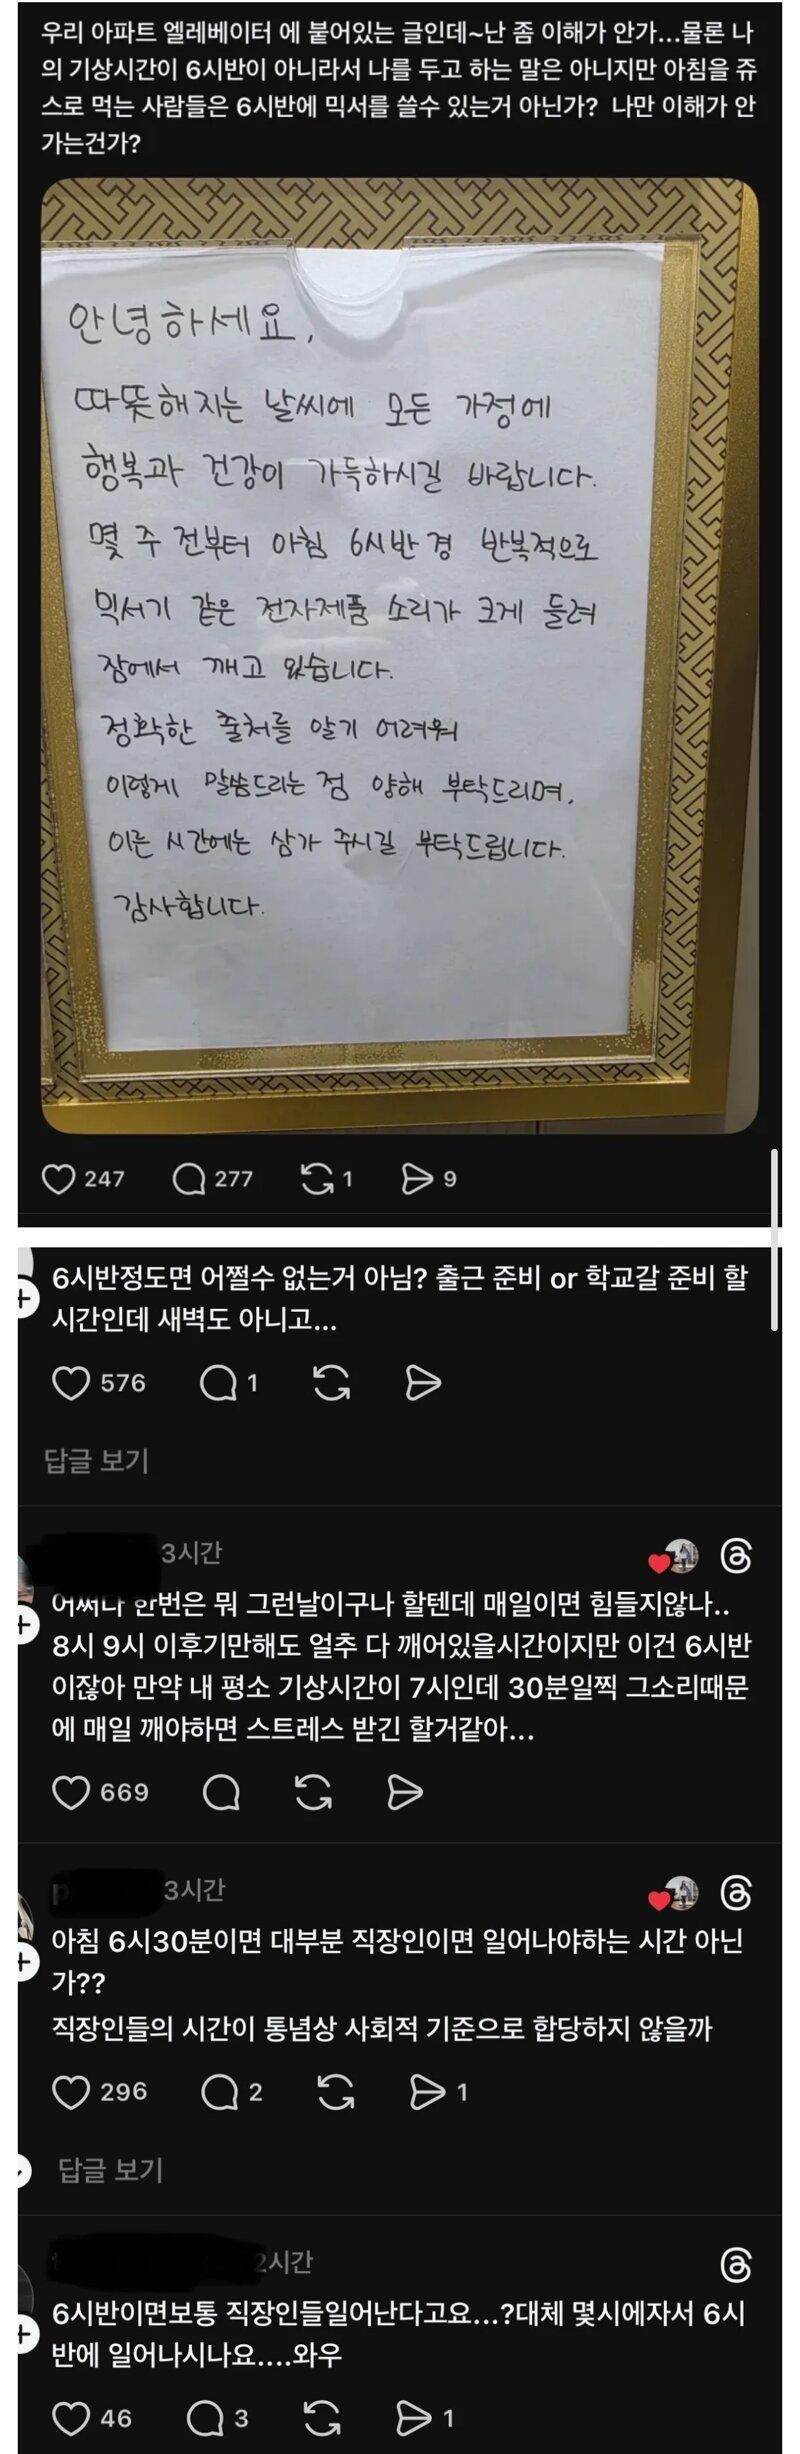 우리 아파트 엘레베이터 에 붙어있는 글인데~난 좀 이해가 안가...물론 나
의 기상시간이 6시반이 아니라서 나를 두고 하는 말은 아니지만 아침을 쥬
스로 먹는 사람들은 6시반에 믹서를 쓸수 있는거 아닌가? 나만 이해가 안
가는건가?
안녕하세요,
따뜻해지는 날씨에 모든 가정에
행복과 건강이 가득하시길 바랍니다.
몇 주 전부터 아침 6시반 경 반복적으로
믹서기 같은 전자제품 소리가 크게 들려
잠에서 깨고 있습니다.
정확한 출처를 알기 어려워
이렇게 말씀드리는 점 양해 부탁드리며,
이른 시간에는 삼가 주시길 부탁드립니다.
감사합니다.
247 277 1 9
6시반정도면 어쩔수 없는거 아님? 출근 준비 or 학교갈 준비 할
시간인데 새벽도 아니고...
576 1
답글 보기
3시간
어쩌다 한번은 뭐 그런날이구나 할텐데 매일이면 힘들지않나..
8시 9시 이후기만해도 얼추 다 깨어있을시간이지만 이건 6시반
이잖아 만약 내 평소 기상시간이 7시인데 30분일찍 그소리때문
에 매일 깨야하면 스트레스 받긴 할거같아...
669
3시간
아침 6시30분이면 대부분 직장인이면 일어나야하는 시간 아닌
가??
직장인들의 시간이 통념상 사회적 기준으로 합당하지 않을까
296 2 1
답글 보기
2시간
6시반이면보통 직장인들일어난다고요...?대체 몇시에자서 6시
반에 일어나시나요....와우
46 3 1